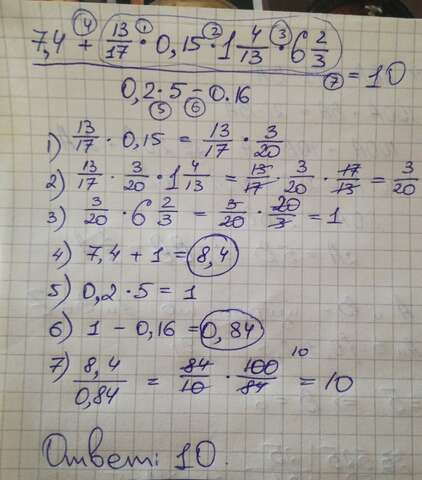 7,4 + (13/17 · 0,15 · 1 4/13 · 6 2/3)
④ ① ② ③
⑦ = 10
0,2 · 5 - 0.16
⑤ ⑥
1) 13/17 · 0,15 = 13/17 · 3/20
2) 13/17 · 3/20 · 1 4/13 = 13/17 · 3/20 · 17/13 = 3/20
3) 3/20 · 6 2/3 = 3/20 · 20/3 = 1
4) 7,4 + 1 = 8,4
5) 0,2 · 5 = 1
6) 1 - 0,16 = 0,84
7) 8,4/0,84 = 84/10 · 100/84 10 = 10
Ответ: 10.